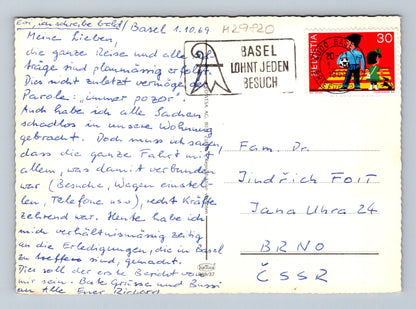 Evi, ich schreibe bald! / Basel 1.10.69
M29720
Meine Lieben,
die ganze Reise und alle
träge sind planmässig erfolgt.
Dies nicht zuletzt vermöge der
Parole: „immer pozor".
Auch habe ich alle Sachen
schadlos in unsere Wohnung
gebracht. Doch muss ich sagen,
dass die ganze Fahrt mit
allem, was damit verbunden
war (Besuche, Wagen einstel-
len, Telefone usw), recht Kräfte
zehrend war. Heute habe ich
mich verhältnismässig zeitig
an die Erledigungen, die in Basel
zu treffen sind, gemacht.
Dies soll der erste Bericht von
mir sein. Beste Grüsse und Bussi
an Alle Euer
BASEL
LOHNT JEDEN
BESUCH
HELVETIA
30
Fam. Dr.
Jindřich FOIT
Jana Uhra 24
BRNO
ČSSR